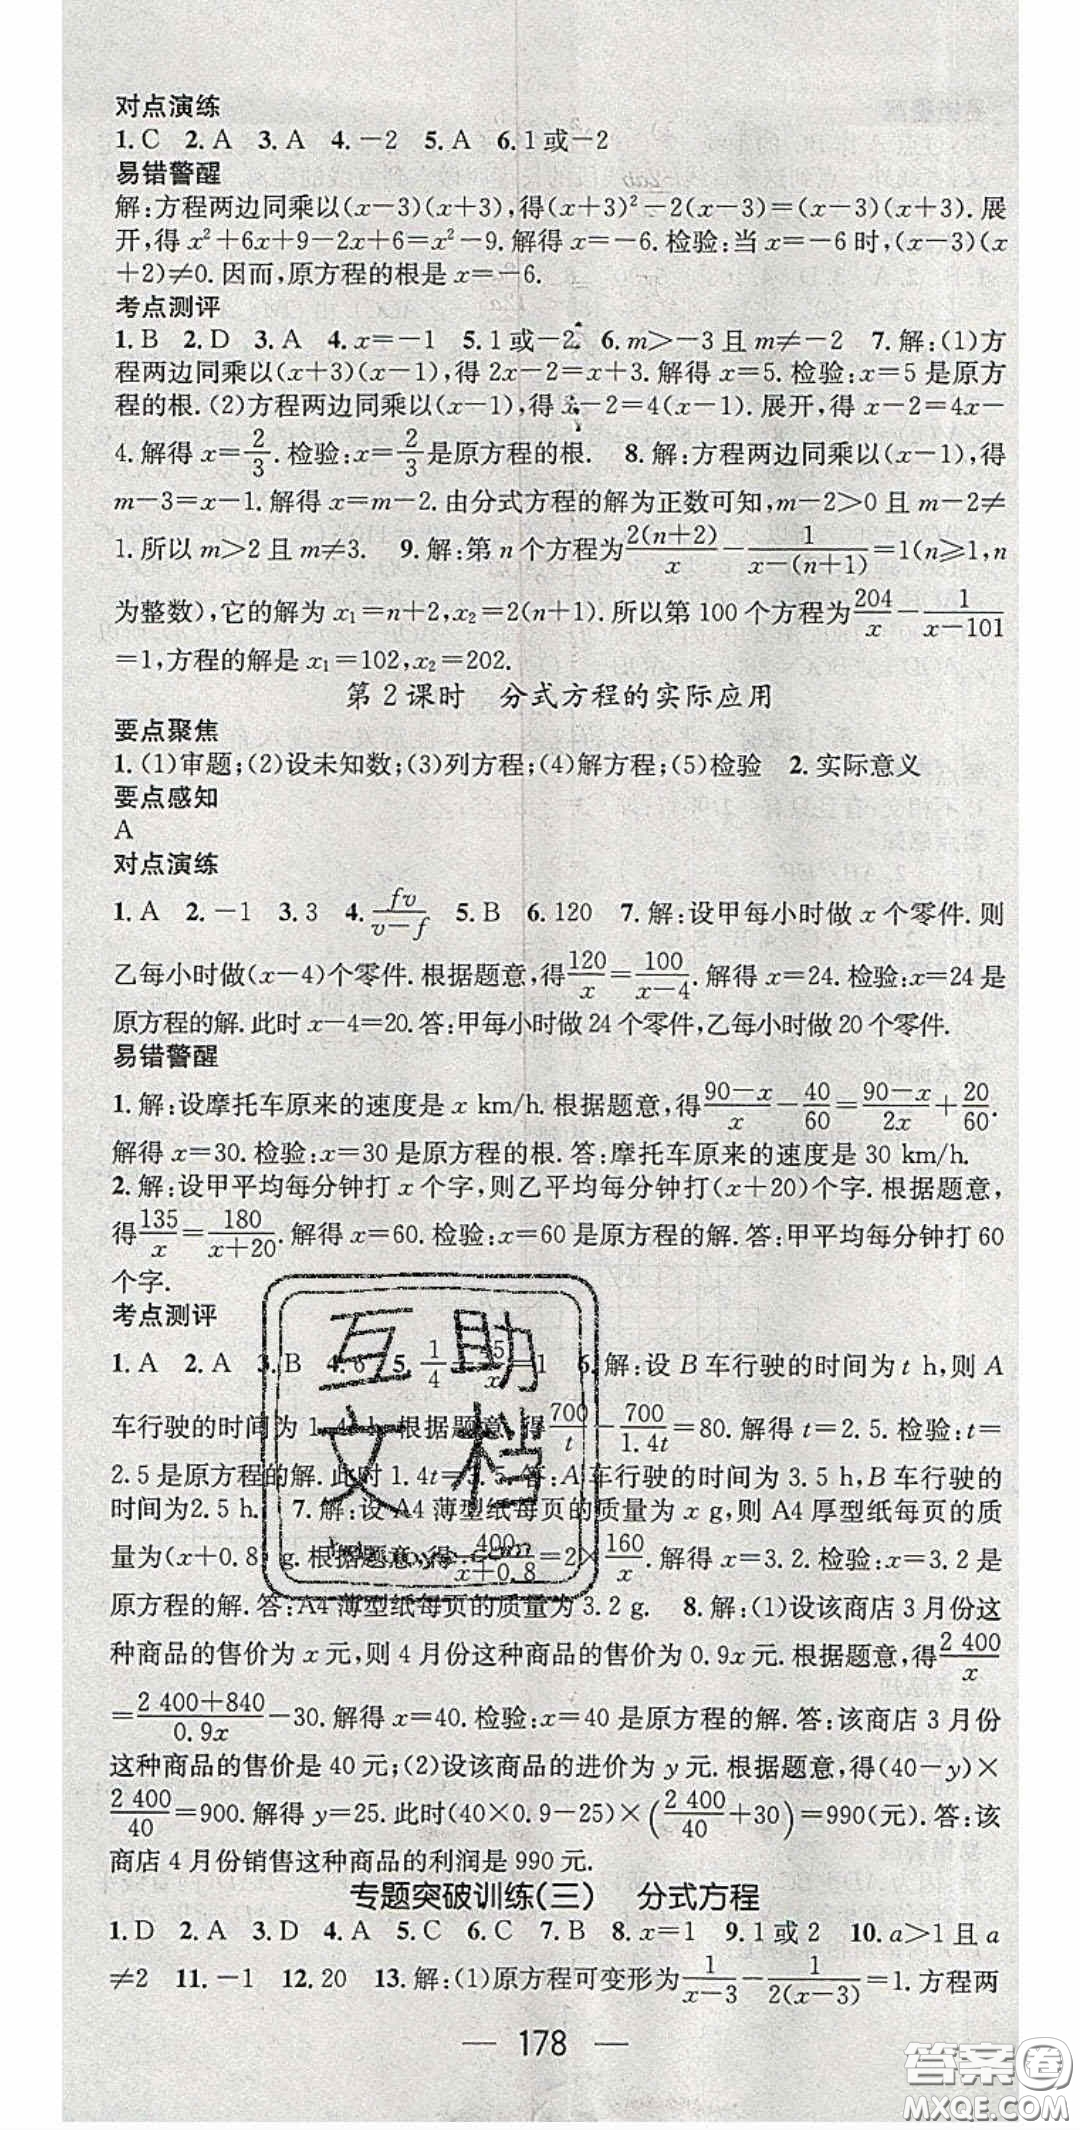 对点演练
1.C 2.A 3.A 4.-2 5.A 6.1或-2
易错警醒
解:方程两边同乘以(x-3)(x+3),得(x+3)²-2(x-3)=(x-3)(x+3).展
开,得 x²+6x+9-2x+6=x²-9.解得 x=-6.检验:当 x=-6 时,(x-3)(x
+2)≠0.因而,原方程的根是 x=-6.
考点测评
1.B 2.D 3.A 4.x=-1 5.1或-2 6.m>-3 且 m≠-2 7.解:(1)方
程两边同乘以(x+3)(x-1),得 2x-2=x+3.解得 x=5.检验:x=5 是原方
程的根.(2)方程两边同乘以(x-1),得 x-2=4(x-1).展开,得 x-2=4x-
4.解得 x=2/3.检验:x=2/3是原方程的根. 8.解:方程两边同乘以(x-1),得
m-3=x-1.解得 x=m-2.由分式方程的解为正数可知,m-2>0 且 m-2≠
1.所以 m>2 且 m≠3. 9.解:第 n 个方程为2(n+2)/x-1/(x-(n+1))=1(n≥1,n
为整数),它的解为 x₁=n+2,x₂=2(n+1).所以第 100 个方程为204/x-1/(x-101)
=1,方程的解是 x₁=102,x₂=202.
第 2 课时 分式方程的实际应用
要点聚焦
1.(1)审题;(2)设未知数;(3)列方程;(4)解方程;(5)检验 2.实际意义
要点感知
A
对点演练
1.A 2.-1 3.3 4.fv/(v-f) 5.B 6.120 7.解:设甲每小时做 x 个零件.则
乙每小时做(x-4)个零件.根据题意,得120/x=100/(x-4).解得 x=24.检验:x=24 是
原方程的解.此时 x-4=20.答:甲每小时做 24 个零件,乙每小时做 20 个零件.
易错警醒
1.解:设摩托车原来的速度是 x km/h.根据题意,得(90-x)/x-40/60=(90-x)/2x+20/60.
解得 x=30.检验:x=30 是原方程的根.答:摩托车原来的速度是 30 km/h.
2.解:设甲平均每分钟打 x 个字,则乙平均每分钟打(x+20)个字.根据题意,
得135/x=180/(x+20).解得 x=60.检验:x=60 是原方程的解.答:甲平均每分钟打 60
个字.
考点测评
1.A 2.A 3.B 4.6 5.1/4 45/x=1 6.解:设 B 车行驶的时间为 t h,则 A
车行驶的时间为 1.4t h.根据题意,得700/t-700/1.4t=80.解得 t=2.5.检验:t=
2.5 是原方程的解.此时 1.4t=3.5.答:A 车行驶的时间为 3.5 h,B 车行驶的
时间为2.5 h. 7.解:设 A4 薄型纸每页的质量为 x g,则 A4 厚型纸每页的质
量为(x+0.8) g.根据题意,得400/(x+0.8)=2×160/x.解得 x=3.2.检验:x=3.2 是
原方程的解.答:A4 薄型纸每页的质量为 3.2 g. 8.解:(1)设该商店 3 月份这
种商品的售价为 x 元,则 4 月份这种商品的售价为 0.9x 元.根据题意,得2 400/x
=(2 400+840)/0.9x-30.解得 x=40.检验:x=40 是原方程的解.答:该商店 3 月份
这种商品的售价是 40 元;(2)设该商品的进价为 y 元.根据题意,得(40-y)×
2 400/40=900.解得 y=25.此时(40×0.9-25)×(2 400/40+30)=990(元).答:该
商店 4 月份销售这种商品的利润是 990 元.
专题突破训练(三) 分式方程
1.D 2.A 3.D 4.A 5.C 6.C 7.B 8.x=1 9.1 或 2 10.a>1 且 a
≠2 11.-1 12.20 13.解:(1)原方程可变形为1/(x-3)-1/(2(x-3))=1.方程两
— 178 —
互助
文档
答案卷
MXQE.COM